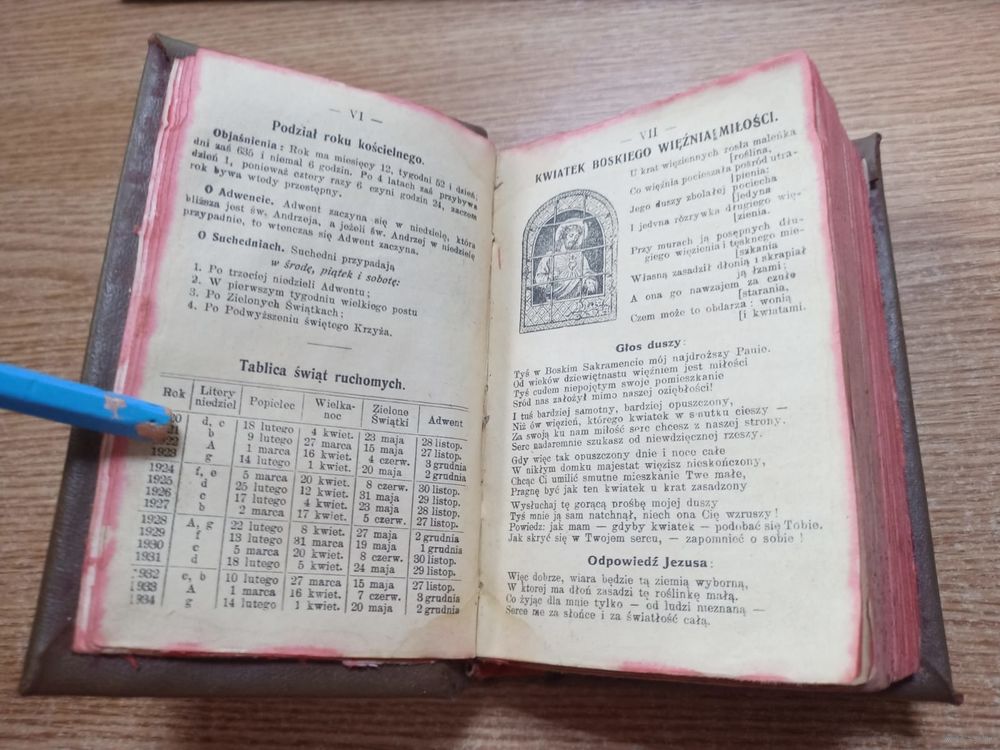 — VI —
Podział roku kościelnego.
Objaśnienia: Rok ma miesięcy 12, tygodni 52 i dzień,
dni zaś 635 i niemal 6 godzin. Po 4 latach zaś przybywa
dzień 1, ponieważ cztory razy 6 czyni godzin 24, zaczem
rok bywa wtody przostępny.
O Adwencie. Adwent zaczyna się w niedzielę, która
bliższa jest św. Andrzeja, a jeżeli św. Andrzej w niedzielę
przypadnie, to wtenczas się Adwent zaczyna.
O Suchedniach. Suchedni przypadają
w środę, piątek i sobotę:
1. Po trzeciej niedzieli Adwentu;
2. W pierwszym tygodniu wielkiego postu
3. Po Zielonych Świątkach;
4. Po Podwyższeniu świętego Krzyża.
Tablica świąt ruchomych.
Rok Litery niedziel Popielec Wielka-noc Zielone Świątki Adwent
d, c 18 lutego 4 kwiet. 23 maja 28 listop.
b 9 lutego 27 marca 15 maja 27 listop.
1922 A 1 marca 16 kwiet. 4 czerw. 3 grudnia
1923 g 14 lutego 1 kwiet. 20 maja 2 grudnia
1924 f, e 5 marca 20 kwiet. 8 czerw. 30 listop.
1925 d 25 lutego 12 kwiet. 31 maja 29 listop.
1926 c 17 lutego 4 kwiet. 23 maja 28 listop.
1927 b 2 marca 17 kwiet. 5 czerw. 27 listop.
1928 A, g 22 lutego 8 kwiet. 27 maja 2 grudnia
1929 f 13 lutego 31 marca 19 maja 1 grudnia
1930 e 5 marca 20 kwiet. 8 czerw. 30 listop.
1931 d 18 lutego 5 kwiet. 24 maja 29 listop.
1932 c, b 10 lutego 27 marca 15 maja 27 listop.
1933 A 1 marca 16 kwiet. 7 czerw. 3 grudnia
1934 g 14 lutego 1 kwiet. 20 maja 2 grudnia
— VII —
KWIATEK BOSKIEGO WIĘŹNIA MIŁOŚCI.
U krat więziennych rosła maleńka
[roślina,
Co więźnia pocieszała pośród utra-
[pienia:
Jego duszy zbolałej pociecha
[jedyna
I jedyna rozrywka długiego wię-
[zienia.
Przy murach ja posępnych dłu-
giego więzienia i tęsknego mie-
[szkania
Własną zasadził dłonią i skrapiał
ją łzami;
A ona go nawzajem za czułe
[starania,
Czem może to obdarza: wonią
[i kwiatami.
Głos duszy:
Tyś w Boskim Sakramencie mój najdroższy Panie.
Od wieków dziewiętnastu więźniem jest miłości
Tyś cudem niepojętym swoje pomieszkanie
Śród nas założył mimo naszej oziębłości!
I tuś bardziej samotny, bardziej opuszczony,
Niż ów więzień, którego kwiatek w smutku cieszy —
Za swoją ku nam miłość serc chcesz z naszej strony.
Serc nadaremnie szukasz od niewdzięcznej rzeszy.
Gdy więc tak opuszczony dnie i noce całe
W nikłym domku majestat więzisz nieskończony,
Chcąc Ci umilić smutne mieszkanie Twe małe,
Pragnę być jak ten kwiatek u krat zasadzony
Wysłuchaj tę gorącą prośbę mojej duszy
Tyś mnie ją sam natchnął, niech ona Cię wzruszy!
Powiedz: jak mam — gdyby kwiatek — podobać się Tobie.
Jak skryć się w Twojem sercu, — zapomnieć o sobie!
Odpowiedź Jezusa:
Więc dobrze, wiara będzie tą ziemią wyborną,
W której ma dłoń zasadzi tę roślinkę małą.
Co żyjąc dla mnie tylko — od ludzi nieznaną —
Serce me za słońce i za światłość całą.